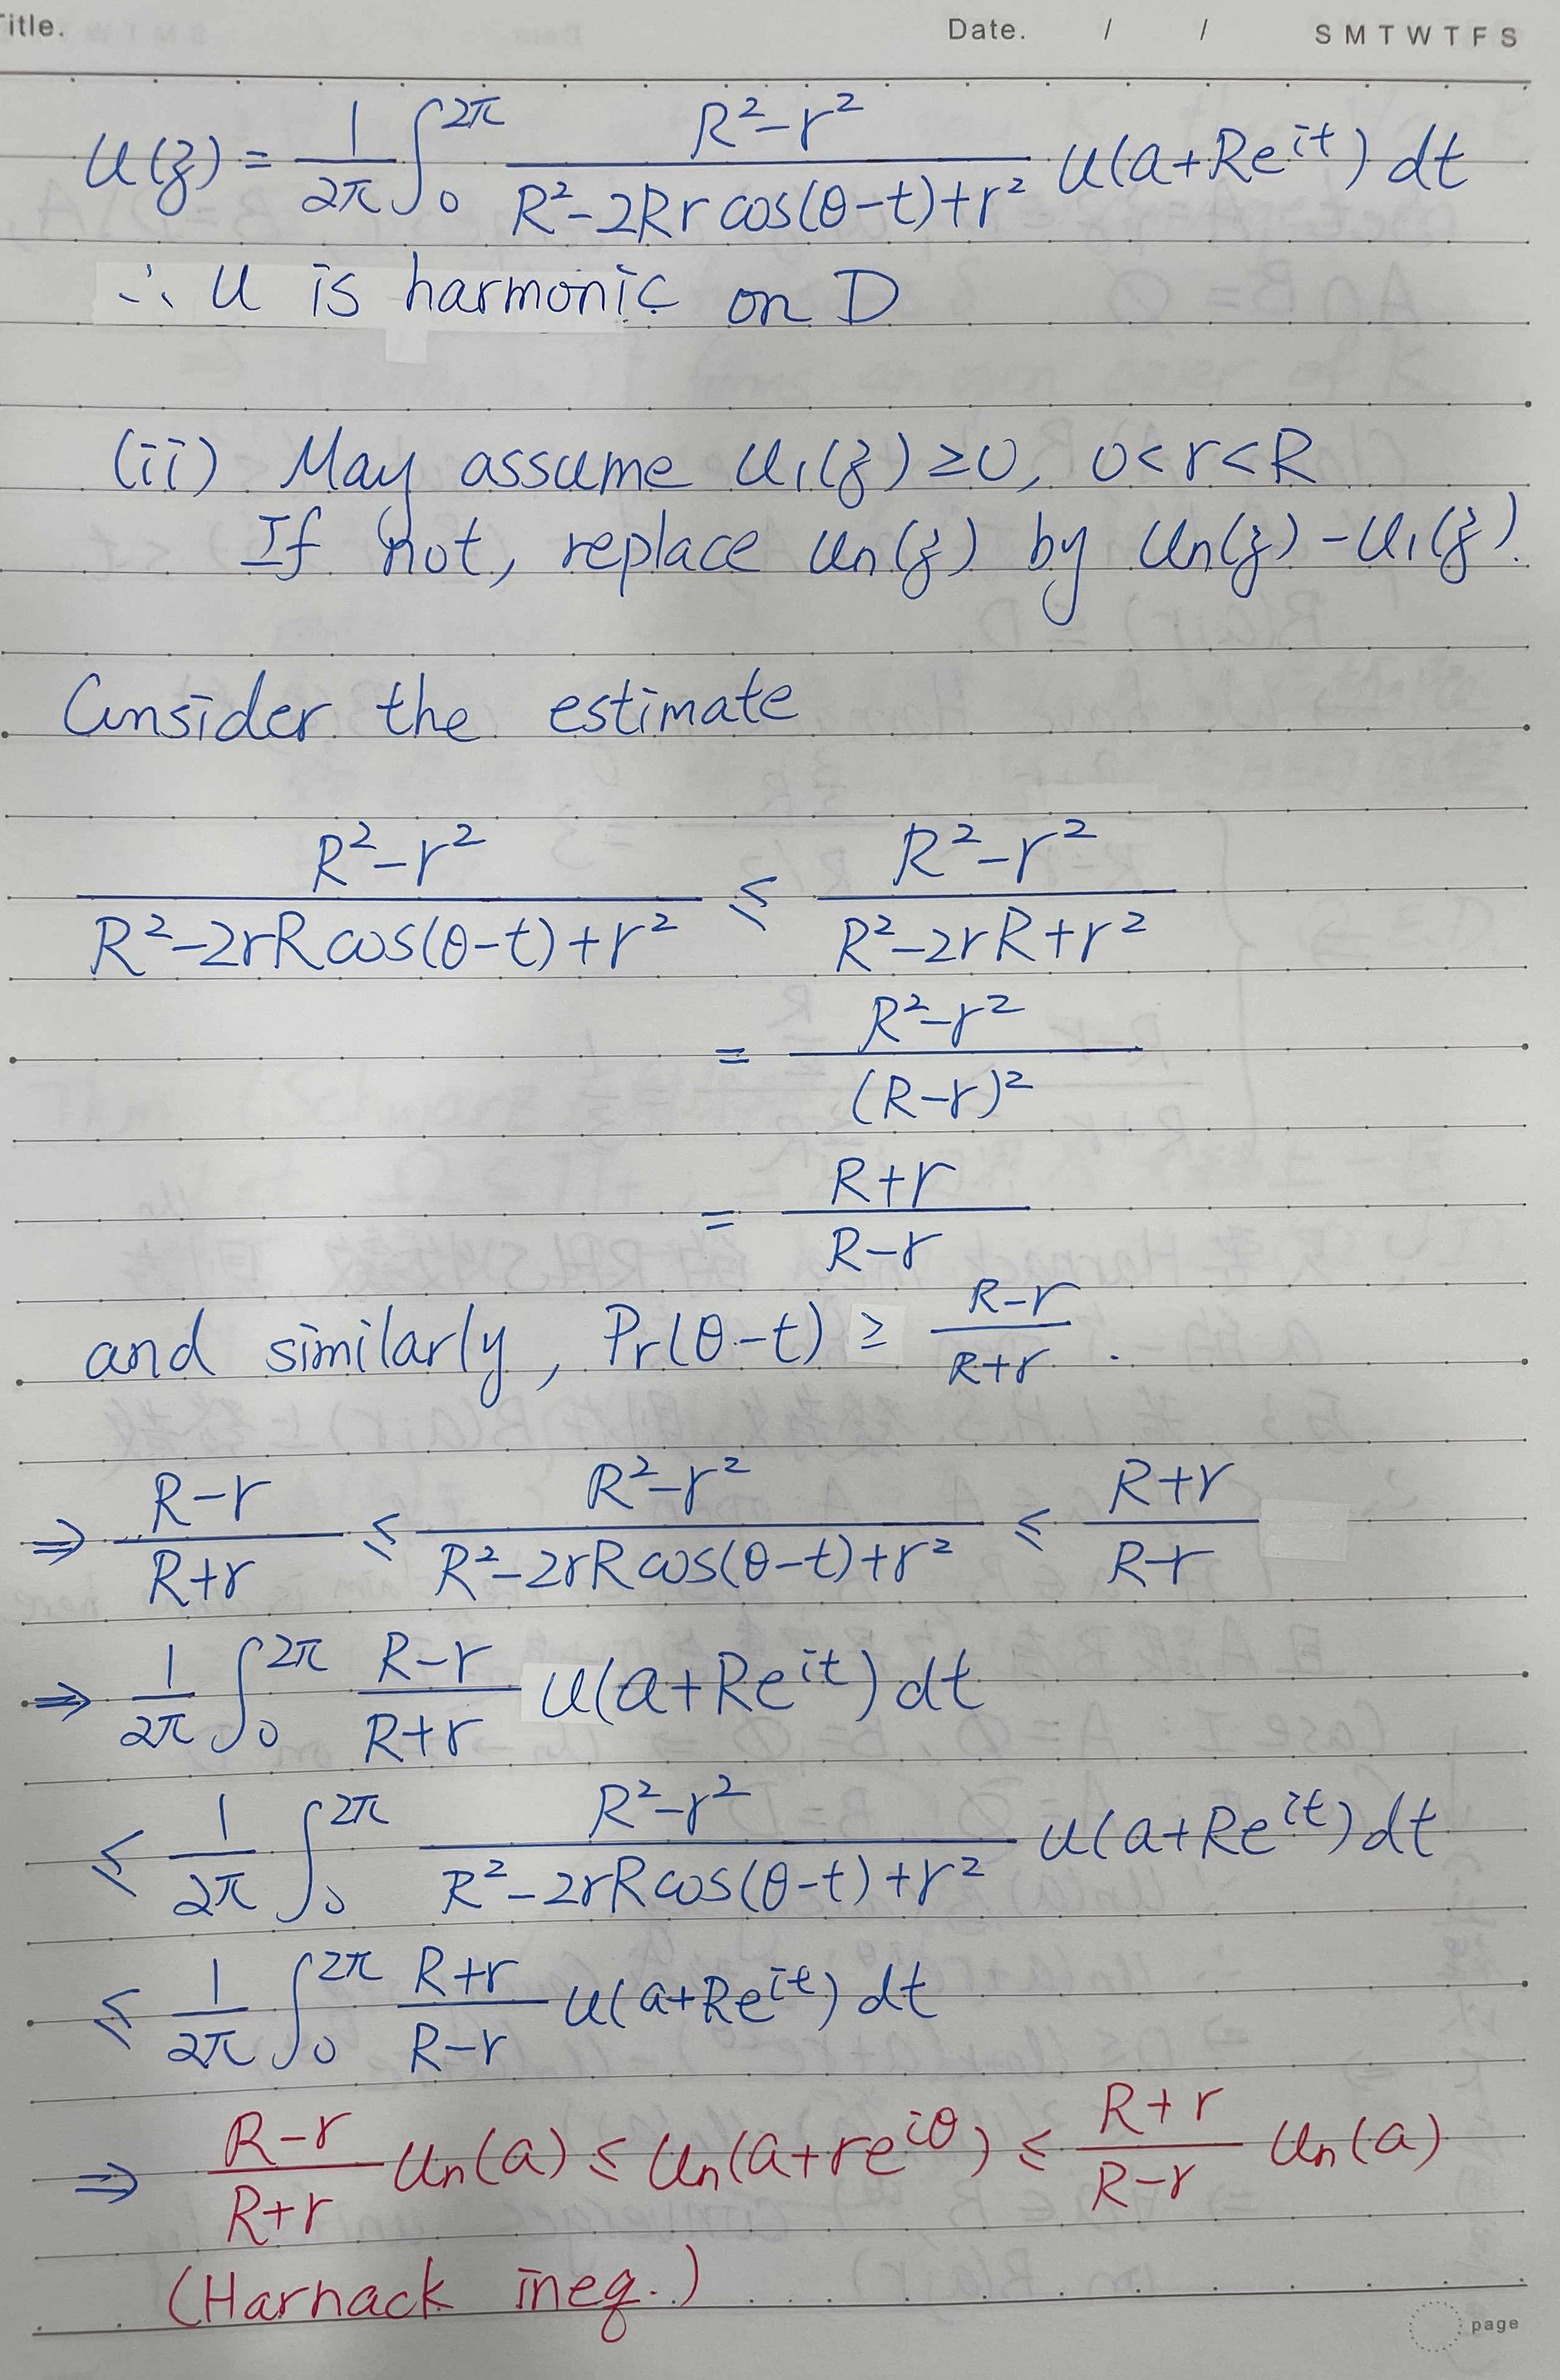 Title. Date. / / S M T W T F S
u(z) = \frac{1}{2π} ∫_0^{2π} \frac{R²-r²}{R²-2Rr cos(θ-t)+r²} u(a+Re^{it}) dt
∴ u is harmonic on D
(ii) May assume u₁(z) ≥ 0, 0<r<R
If not, replace uₙ(z) by uₙ(z) - u₁(z).
Consider the estimate
\frac{R²-r²}{R²-2rR cos(θ-t)+r²} ≤ \frac{R²-r²}{R²-2rR+r²}
= \frac{R²-r²}{(R-r)²}
= \frac{R+r}{R-r}
and similarly, Pr(θ-t) ≥ \frac{R-r}{R+r}.
⇒ \frac{R-r}{R+r} ≤ \frac{R²-r²}{R²-2rR cos(θ-t)+r²} ≤ \frac{R+r}{R-r}
⇒ \frac{1}{2π} ∫_0^{2π} \frac{R-r}{R+r} u(a+Re^{it}) dt
≤ \frac{1}{2π} ∫_0^{2π} \frac{R²-r²}{R²-2rR cos(θ-t)+r²} u(a+Re^{it}) dt
≤ \frac{1}{2π} ∫_0^{2π} \frac{R+r}{R-r} u(a+Re^{it}) dt
⇒ \frac{R-r}{R+r} uₙ(a) ≤ uₙ(a+re^{iθ}) ≤ \frac{R+r}{R-r} uₙ(a)
(Harnack ineq.)
page